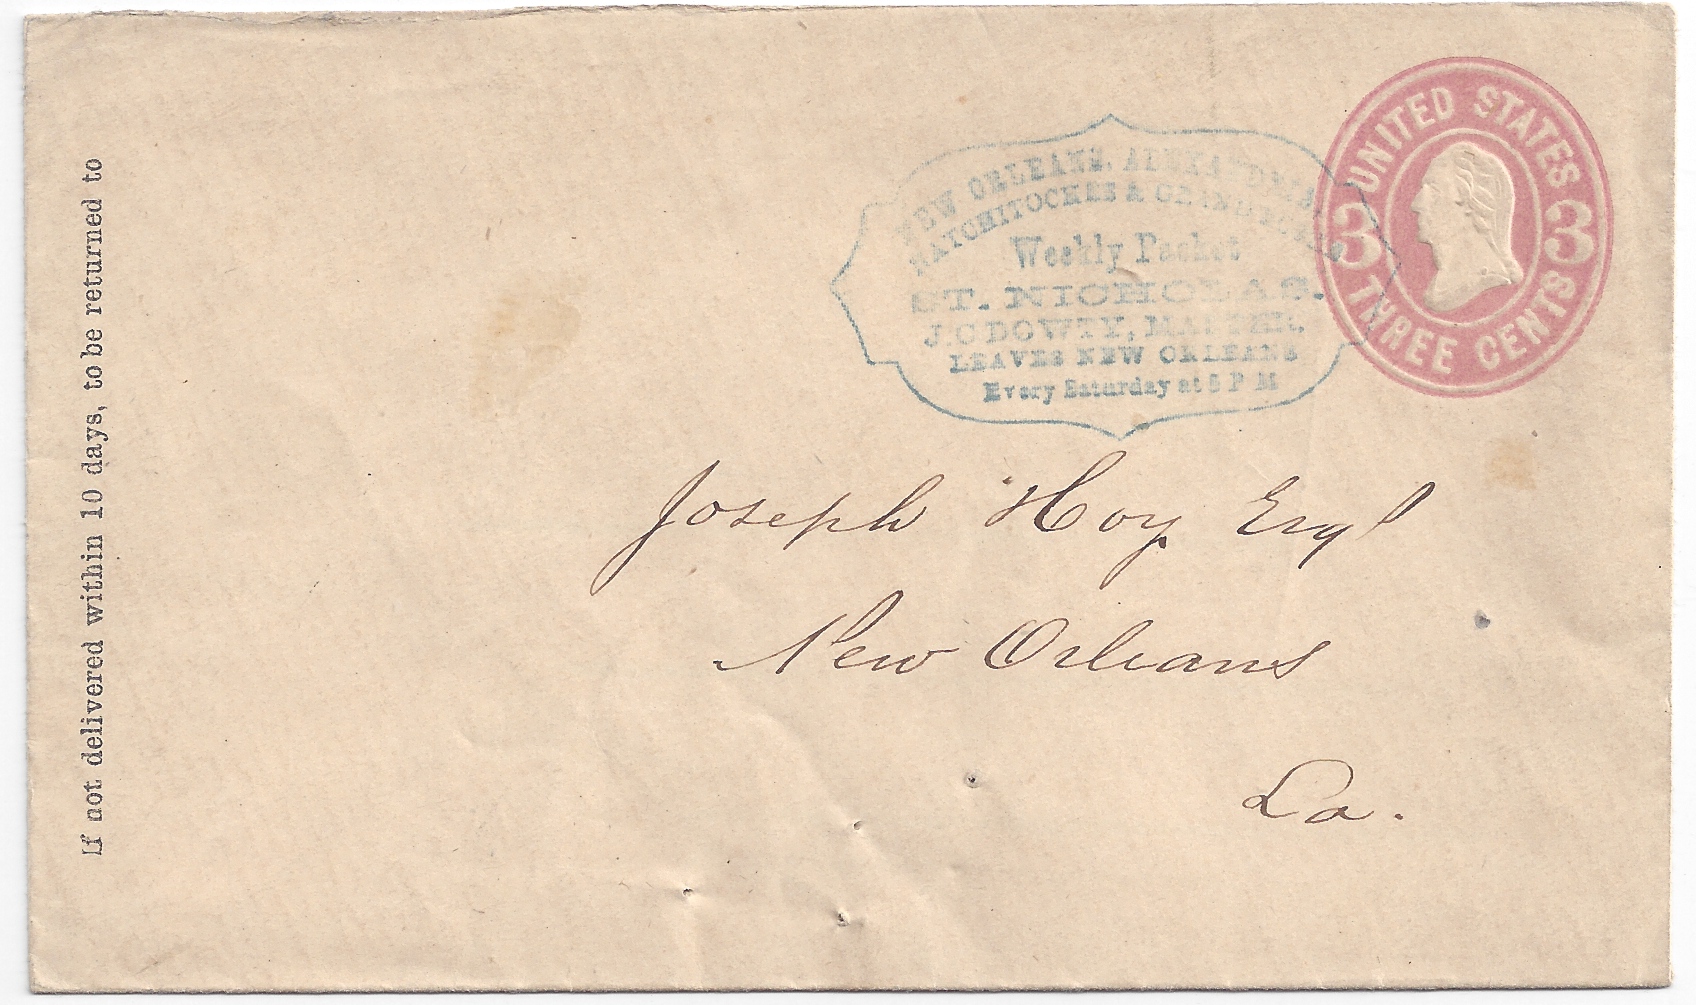 If not delivered within 10 days, to be returned to
NEW ORLEANS, ALEXANDRIA,
NATCHITOCHES & GRAND ECORE
Weekly Packet
ST. NICHOLAS.
J. C DOWTY, MASTER.
LEAVES NEW ORLEANS
Every Saturday at 5 P M
UNITED STATES
3 3
THREE CENTS
Joseph Hoy Esq
New Orleans
La.